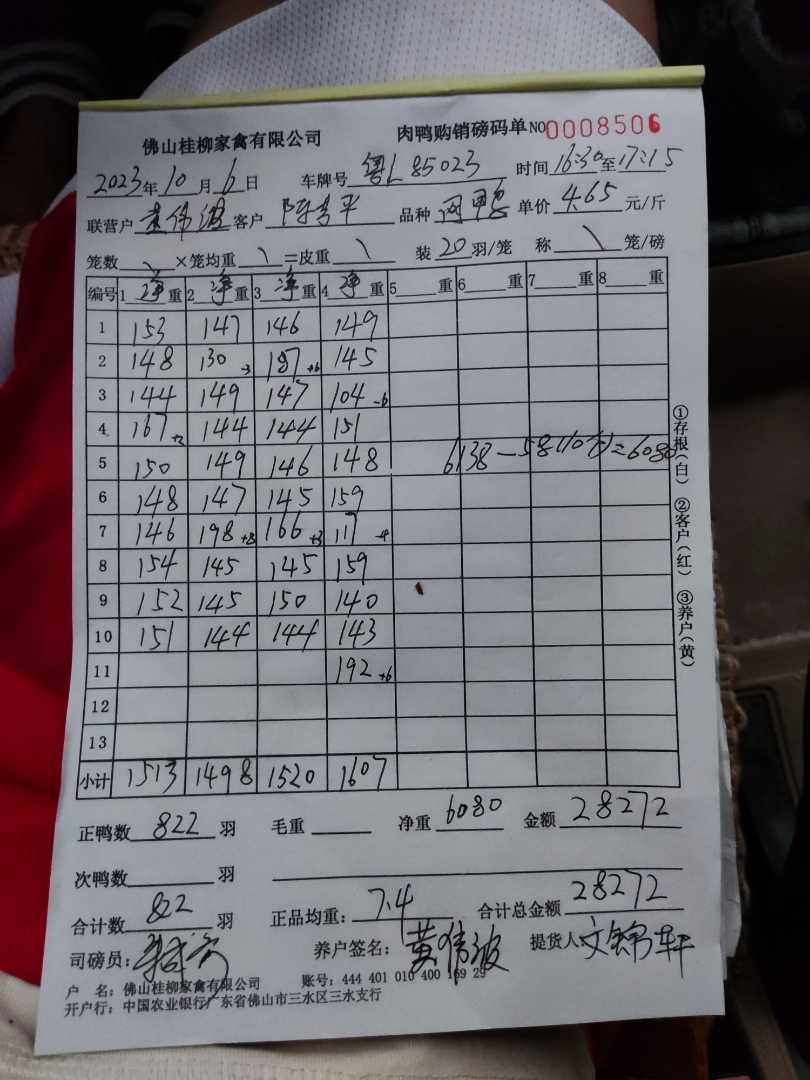 佛山桂柳家禽有限公司 肉鸭购销磅码单 NO 0008506
2023年10月6日 车牌号 粤L85023 时间16:30至17:15
联营户 黄伟波 客户 陈 平 品种 网鸭 单价 4.65 元/斤
笼数 \ ×笼均重 \ =皮重 \ 装 20 羽/笼 称 \ 笼/磅
编号 1 净 重 2 净 重 3 净 重 4 净 重 5 重 6 重 7 重 8 重
1 153 147 146 149
2 148 130 -3 187 +6 145
3 144 149 147 104 -6
4 167 +2 144 144 151
5 150 149 146 148 6138-58(10 )=6080
6 148 147 145 159
7 146 198 +8 166 +3 117 -4
8 154 145 145 159
9 152 145 150 140
10 151 144 144 143
11 192 +6
12
13
小计 1513 1498 1520 1607
①存根(白) ②客户(红) ③养户(黄)
正鸭数 822 羽 毛重 净重 6080 金额 28272
次鸭数 羽
合计数 822 羽 正品均重: 7.4 合计总金额 28272
司磅员: 养户签名: 黄伟波 提货人 文锦轩
户 名: 佛山桂柳家禽有限公司 账号: 444 401 010 400 169 29
开户行: 中国农业银行广东省佛山市三水区三水支行